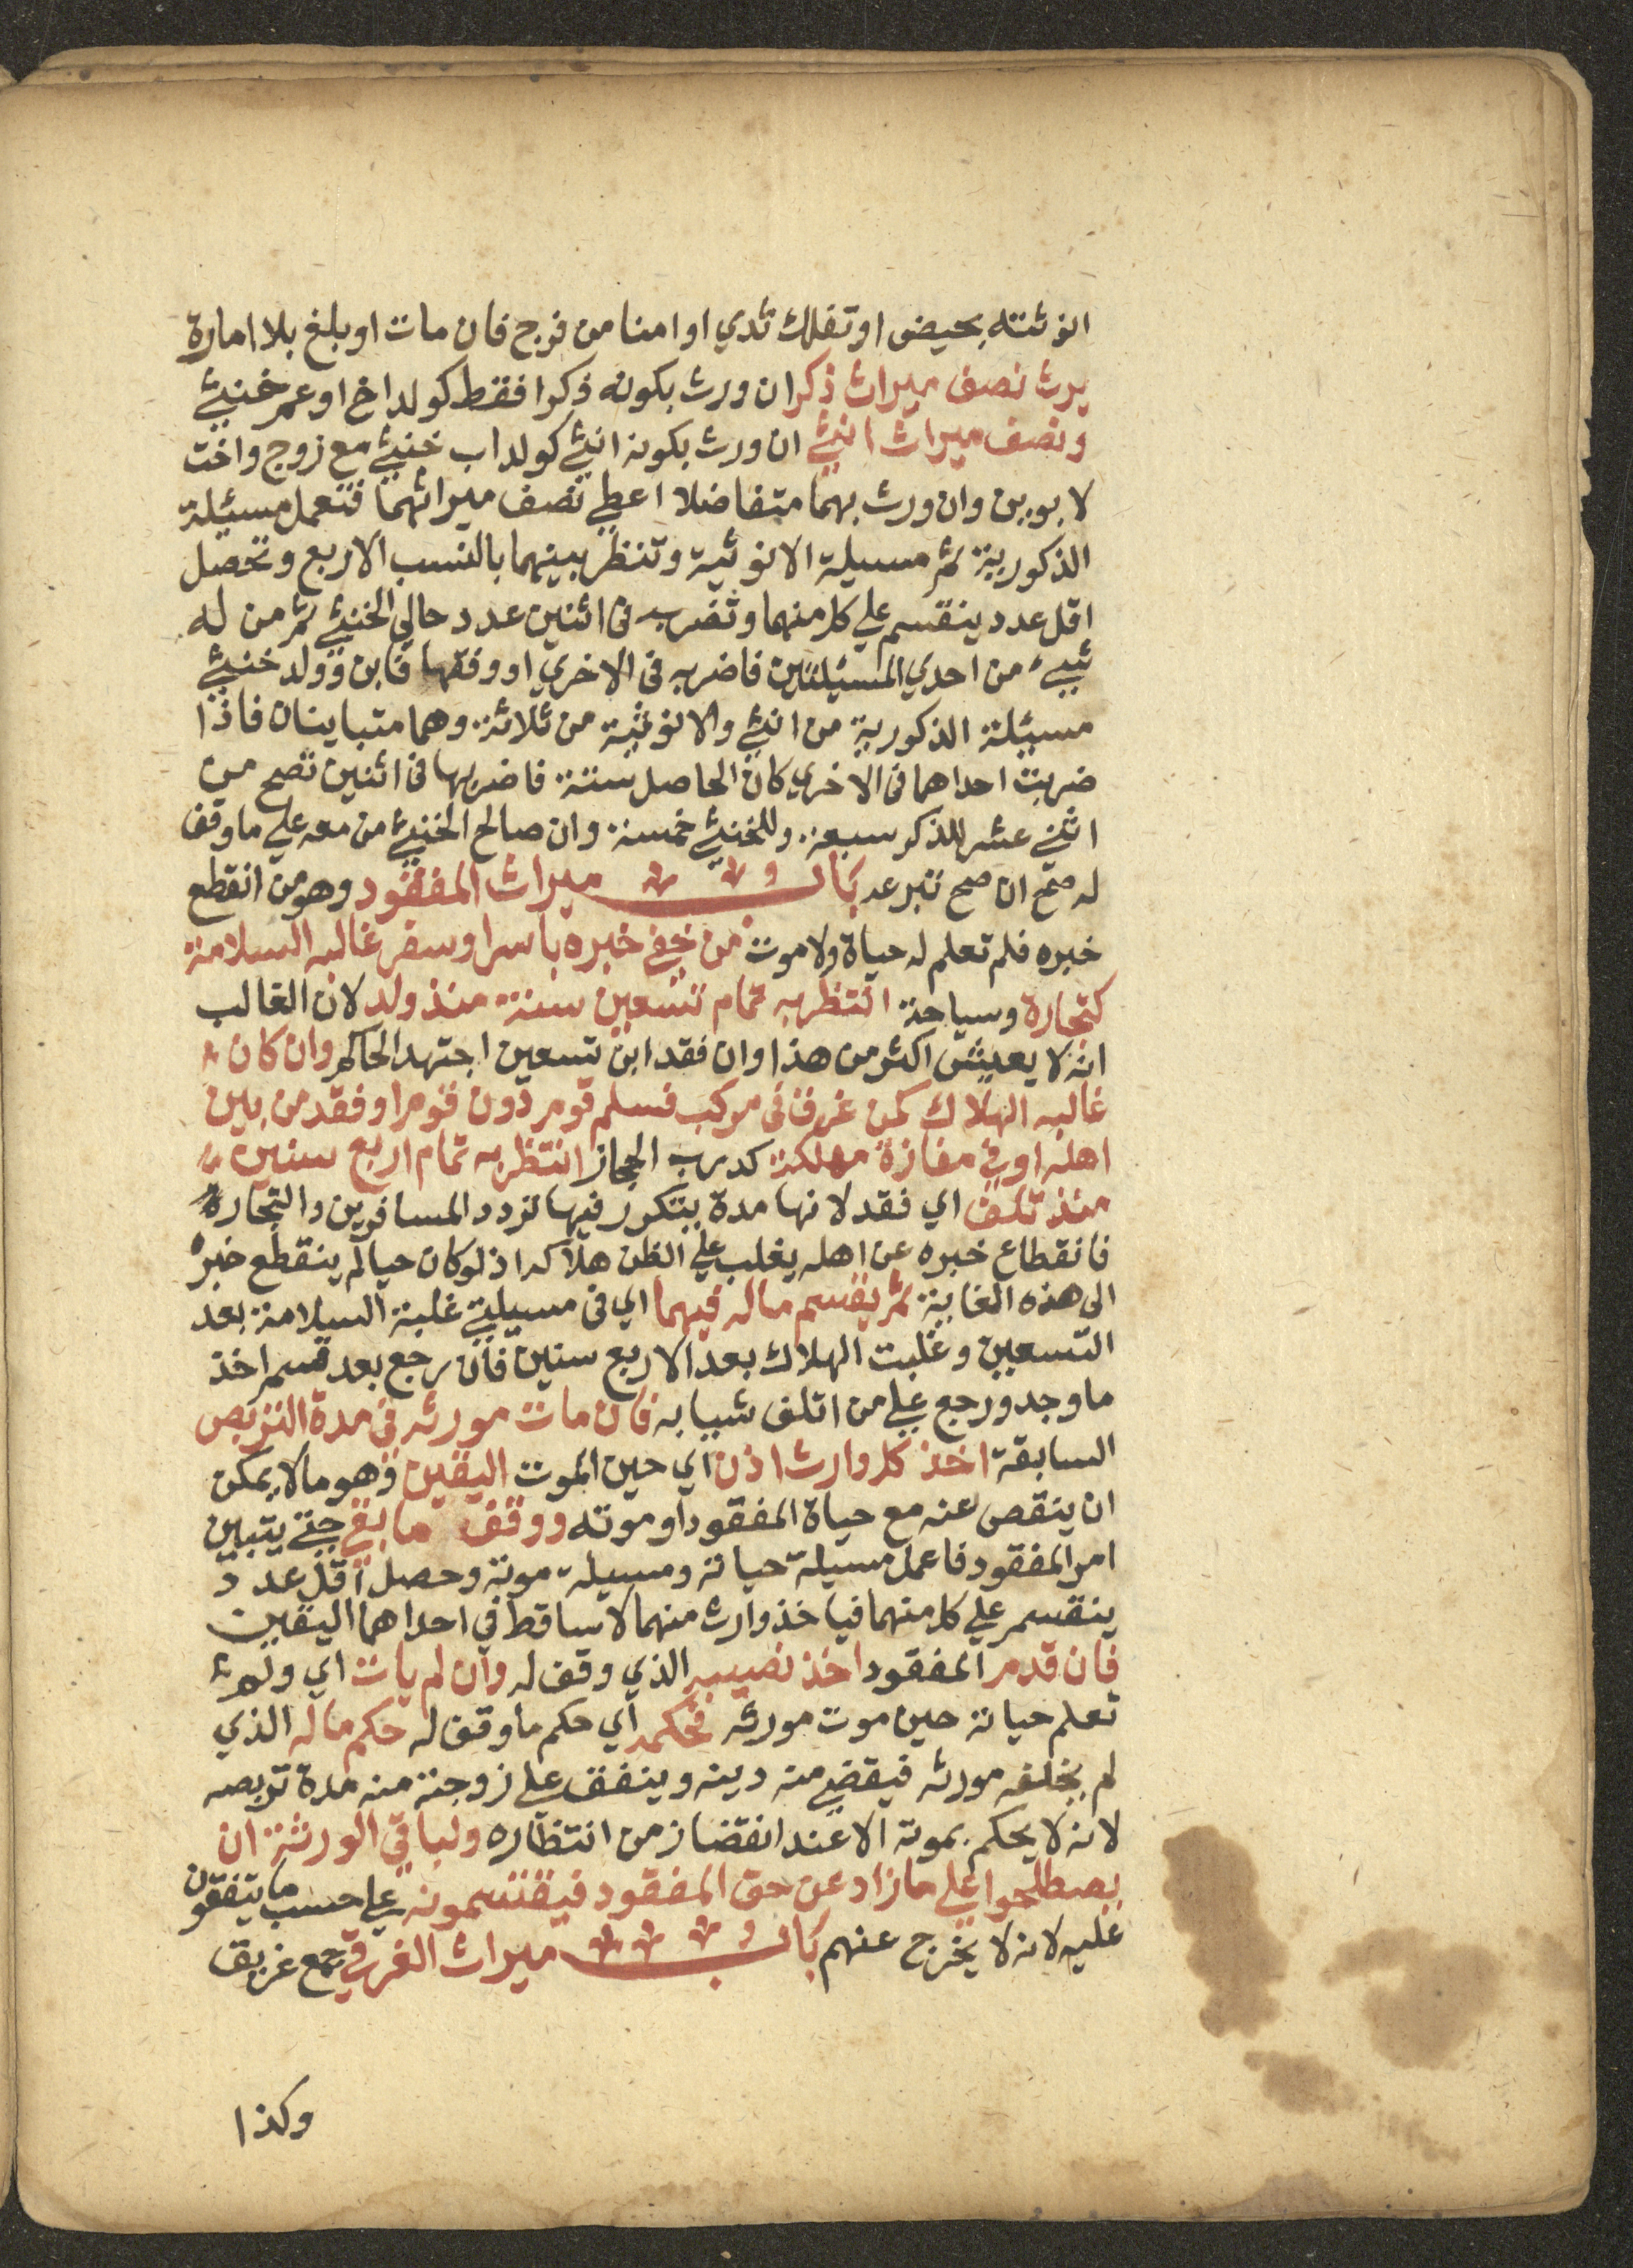 انوثته بحيض او تفلك ثدي او امنا من فرج فان مات او بلغ بلا امارة
يرث نصف ميراث ذكر ان ورث بكونه ذكرا فقط كولد اخ او عم خنثي
ونصف ميراث انثي ان ورث بكونه انثي كولد اب خنثي مع زوج واخت
لابوين وان ورث بهما متفاضلا اعطي نصف ميراثهما فتعمل مسئلة
الذكورية ثم مسيلة الانوثية وتنظر بينهما بالنسب الاربع وتحصل
اقل عدد ينقسم علي كل منهما وتضرب في اثنين عدد حالي الخنثي ثم من له
شيء من احدي المسئلتين فاضربه في الاخري او وفقها فابن وولد خنثي
مسئلة الذكورية من اثني والانوثية من ثلاثة وهما متباينان فاذا
ضربت احداهما في الاخري كان الحاصل ستة فاضربها في اثنين تصح من
اثني عشر للذكر سبعة وللخنثي خمسة وان صالح الخنثي من معه علي ما وقف
له صح ان صح تبرعه باب ميراث المفقود وهو من انقطع
خبره فلم تعلم له حياة ولا موت من خفي خبره باسر او سفر غالبه السلامة
كتجارة وسياحة انتظر به تمام تسعين سنة منذ ولد لان الغالب
انه لا يعيش اكثر من هذا وان فقد ابن تسعين اجتهد الحاكم وان كان
غالبه الهلاك كمن غرق في مركب فسلم قوم دون قوم او فقد من بين
اهله او في مفازة مهلكة كدرب الحجاز انتظر به تمام اربع سنين
منذ تلف اي فقد لانها مدة يتكرر فيها تردد المسافرين والتجارة
فانقطاع خبره عن اهله يغلب علي الظن هلاكه اذ لو كان حيا لم ينقطع خبره
الى هذه الغاية ثم يقسم ماله فيهما اي في مسيلتي غلبة السلامة بعد
التسعين وغلبت الهلاك بعد الاربع سنين فان رجع بعد قسم اخذ
ما وجد ورجع علي من اتلف شييا به فان مات مورثه في مدة التربص
السابقة اخذ كل وارث اذن اي حين الموت اليقين وهو ما لا يمكن
ان ينقص عنه مع حياة المفقود او موته ووقف ما بقي حتي يتبين
امر المفقود فاعمل مسيلة حياته ومسيلة موته وحصل اقل عدد
ينقسم علي كل منهما فياخذ وارث منهما لا ساقط في احداهما اليقين
فان قدم المفقود اخذ نصيبه الذي وقف له وان لم يات اي ولم
تعلم حياته حين موت مورثه فحكمه اي حكم ما وقف له حكم ماله الذي
لم يخلفه مورثه فيقضي منه دينه وينفق علي زوجته منه مدة تربصه
لانه لا يحكم بموته الا عند انقضا زمن انتظاره ولباقي الورثة ان
يصطلحوا علي ما زاد عن حق المفقود فيقتسمونه علي حسب ما يتفقون
عليه لانه لا يخرج عنهم باب ميراث الغرقي جمع غريق
وكذا